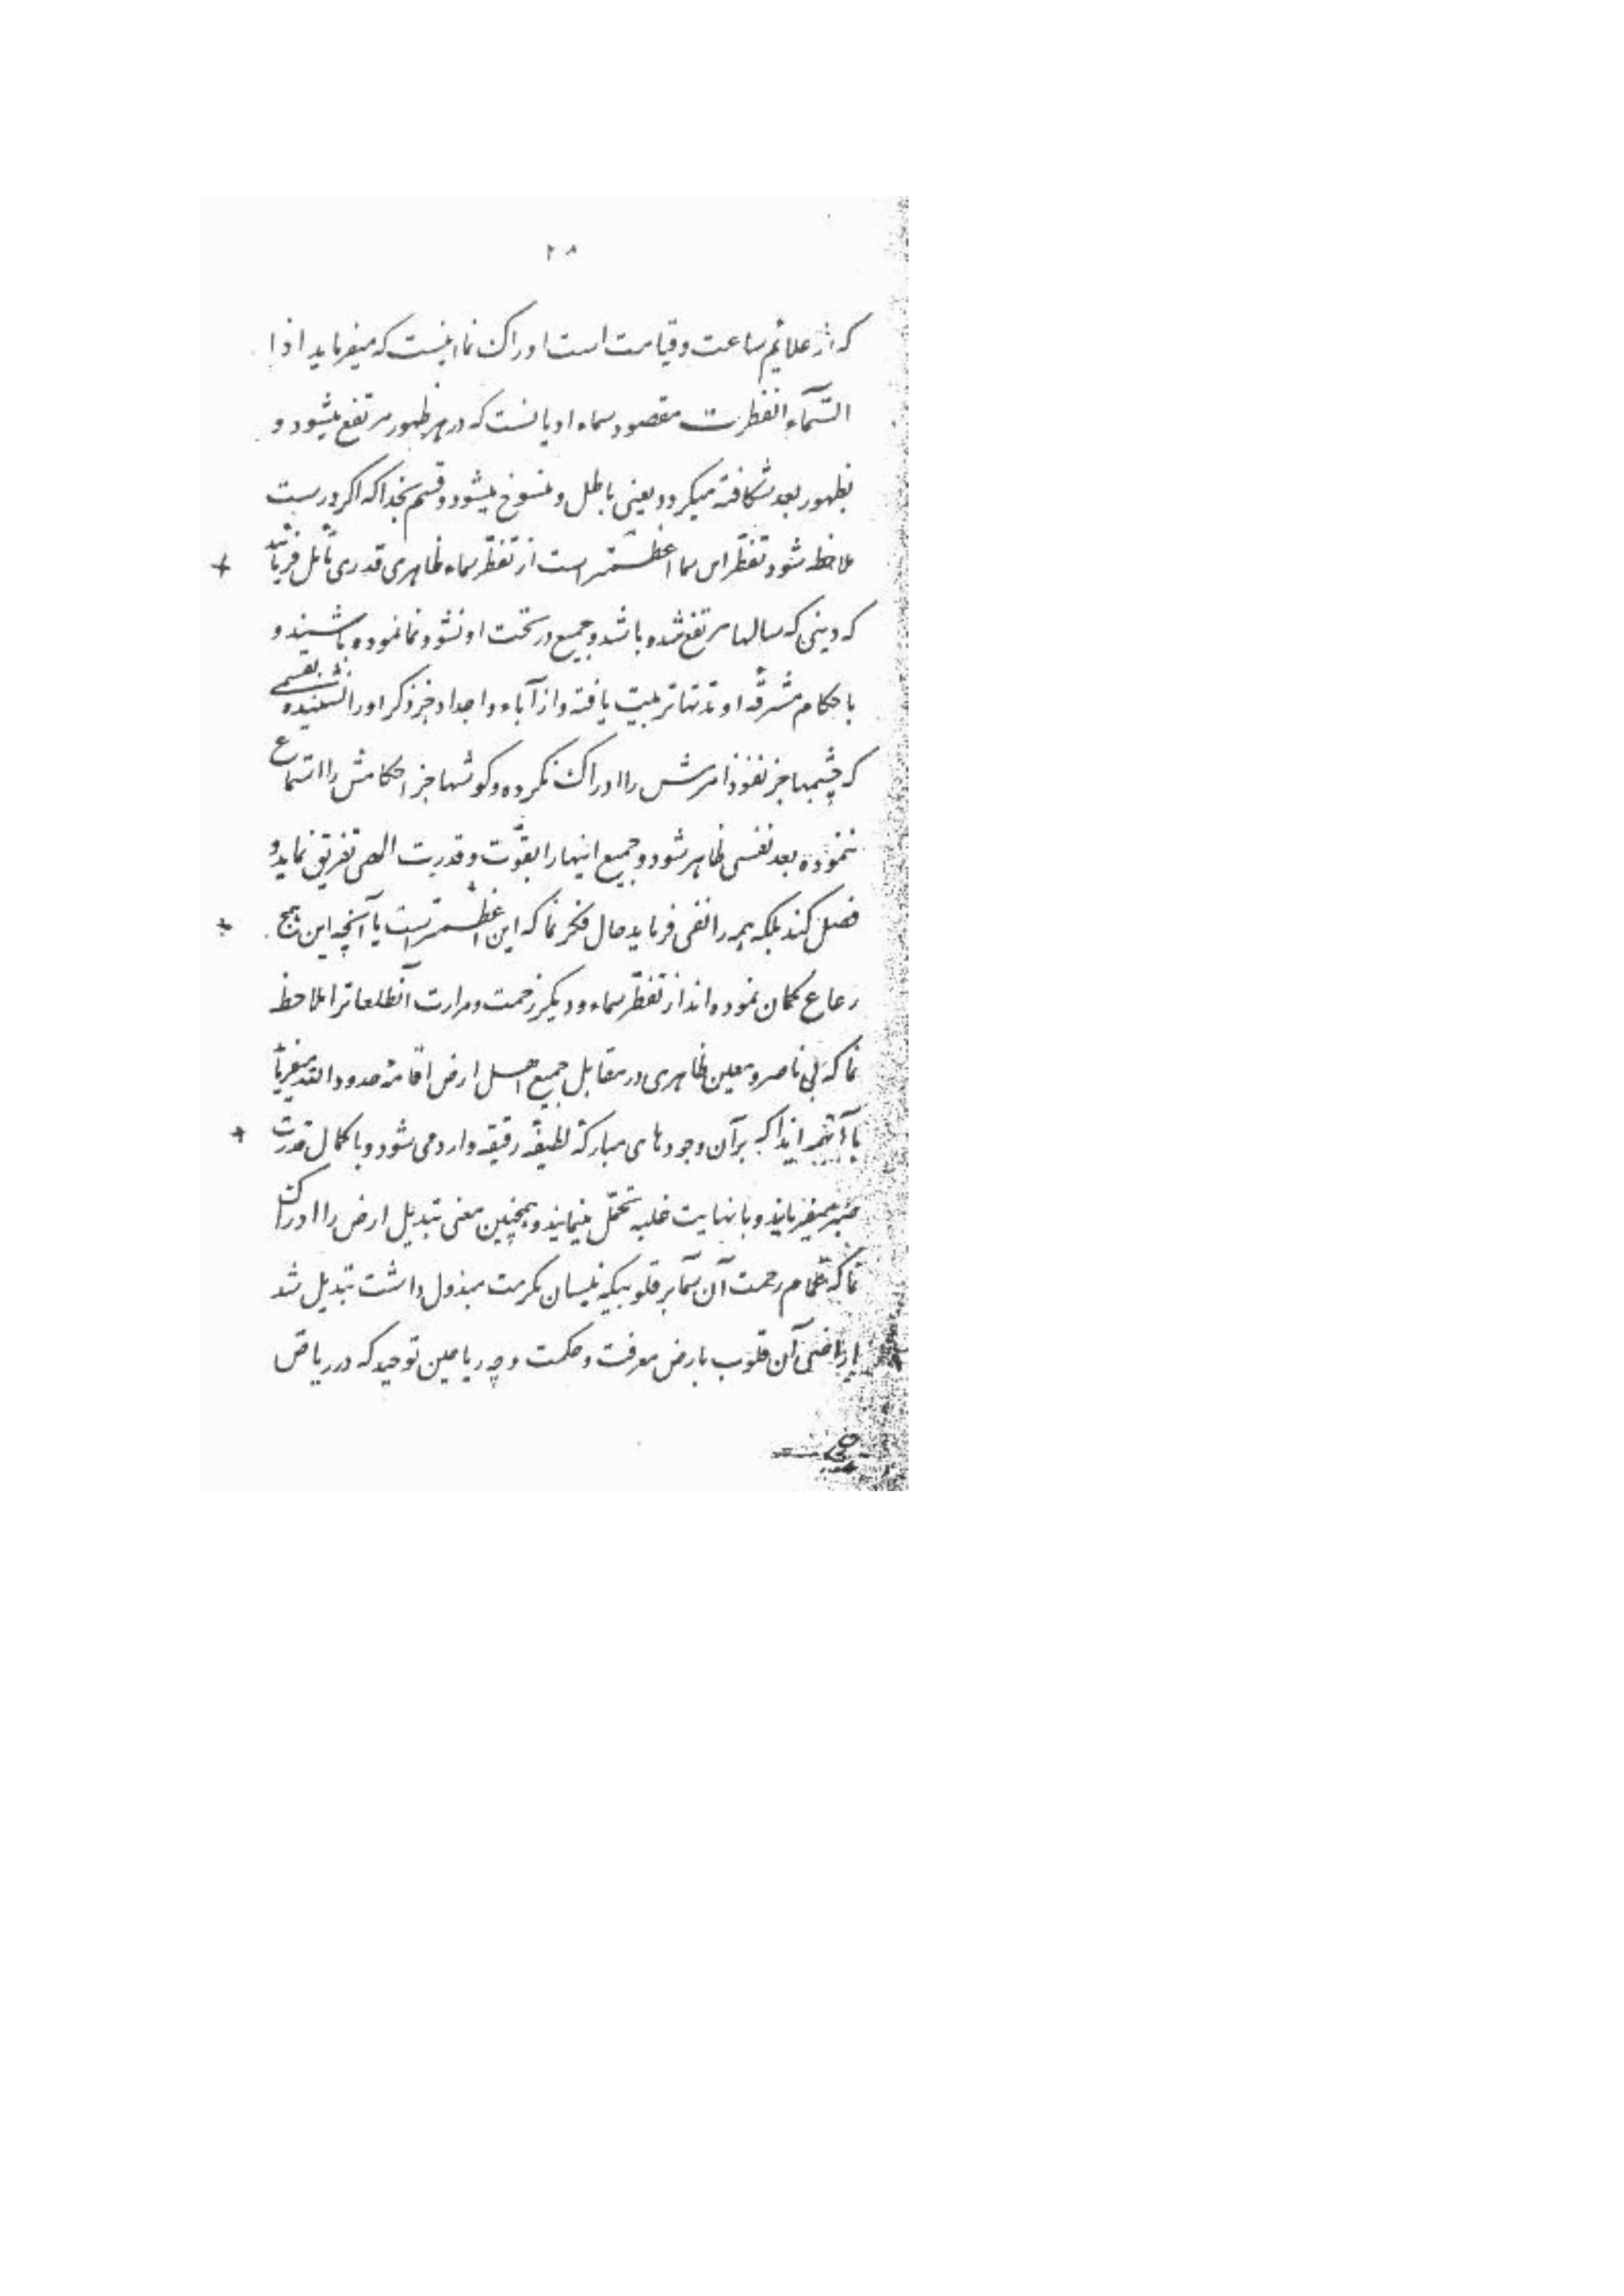 ۲۸
که از علائم ساعت و قیامت است ادراک نما اینست که میفرماید اذا
السّمآء انفطرت مقصود سماء ادیانست که در هر ظهور مرتفع میشود و
بظهور بعد شکافته میگردد یعنی باطل و منسوخ میشود و قسم بخدا که اگر درست
ملاحظه شود تفطّر این سما اعظمتر است از تفطّر سماء ظاهری قدری تأمّل فرمائید
که دینی که سالها مرتفع شده باشد و جمیع در تحت او نشو و نما نموده باشند و
باحکام مشرقهٔ او مدتها تربیت یافته و از آباء و اجداد جز ذکر او را نشنیده بقسمی
که چشمها جز نفوذ امرش را ادراک نکرده و گوشها جز احکامش را استماع
ننموده بعد نفسی ظاهر شود و جمیع اینها را بقوّت و قدرت الهی تفریق نماید و
فصل کند بلکه همه را نفی فرماید حال فکر نما که این اعظمتر است یا آنچه این همج
رعاع گمان نموده‌اند از تفطّر سماء و دیگر زحمت و مرارت آنطلعاترا ملاحظه
نما که بی ناصر و معین ظاهری در مقابل جمیع اهل ارض اقامهٔ حدود الله میفرمایند
با آنهمه ایذا که بر آن وجودهای مبارکهٔ لطیفهٔ رقیقه وارد می‌شود و با کمال قدرت
صبر میفرمایند و با نهایت غلبه تحمّل مینمایند و همچنین معنی تبدیل ارض را ادراک
نما که غمام رحمت آن سما بر قلوبیکه نیسان مکرمت مبذول داشت تبدیل شد
اراضی آن قلوب بارض معرفت و حکمت و چه ریاحین توحید که در ریاض